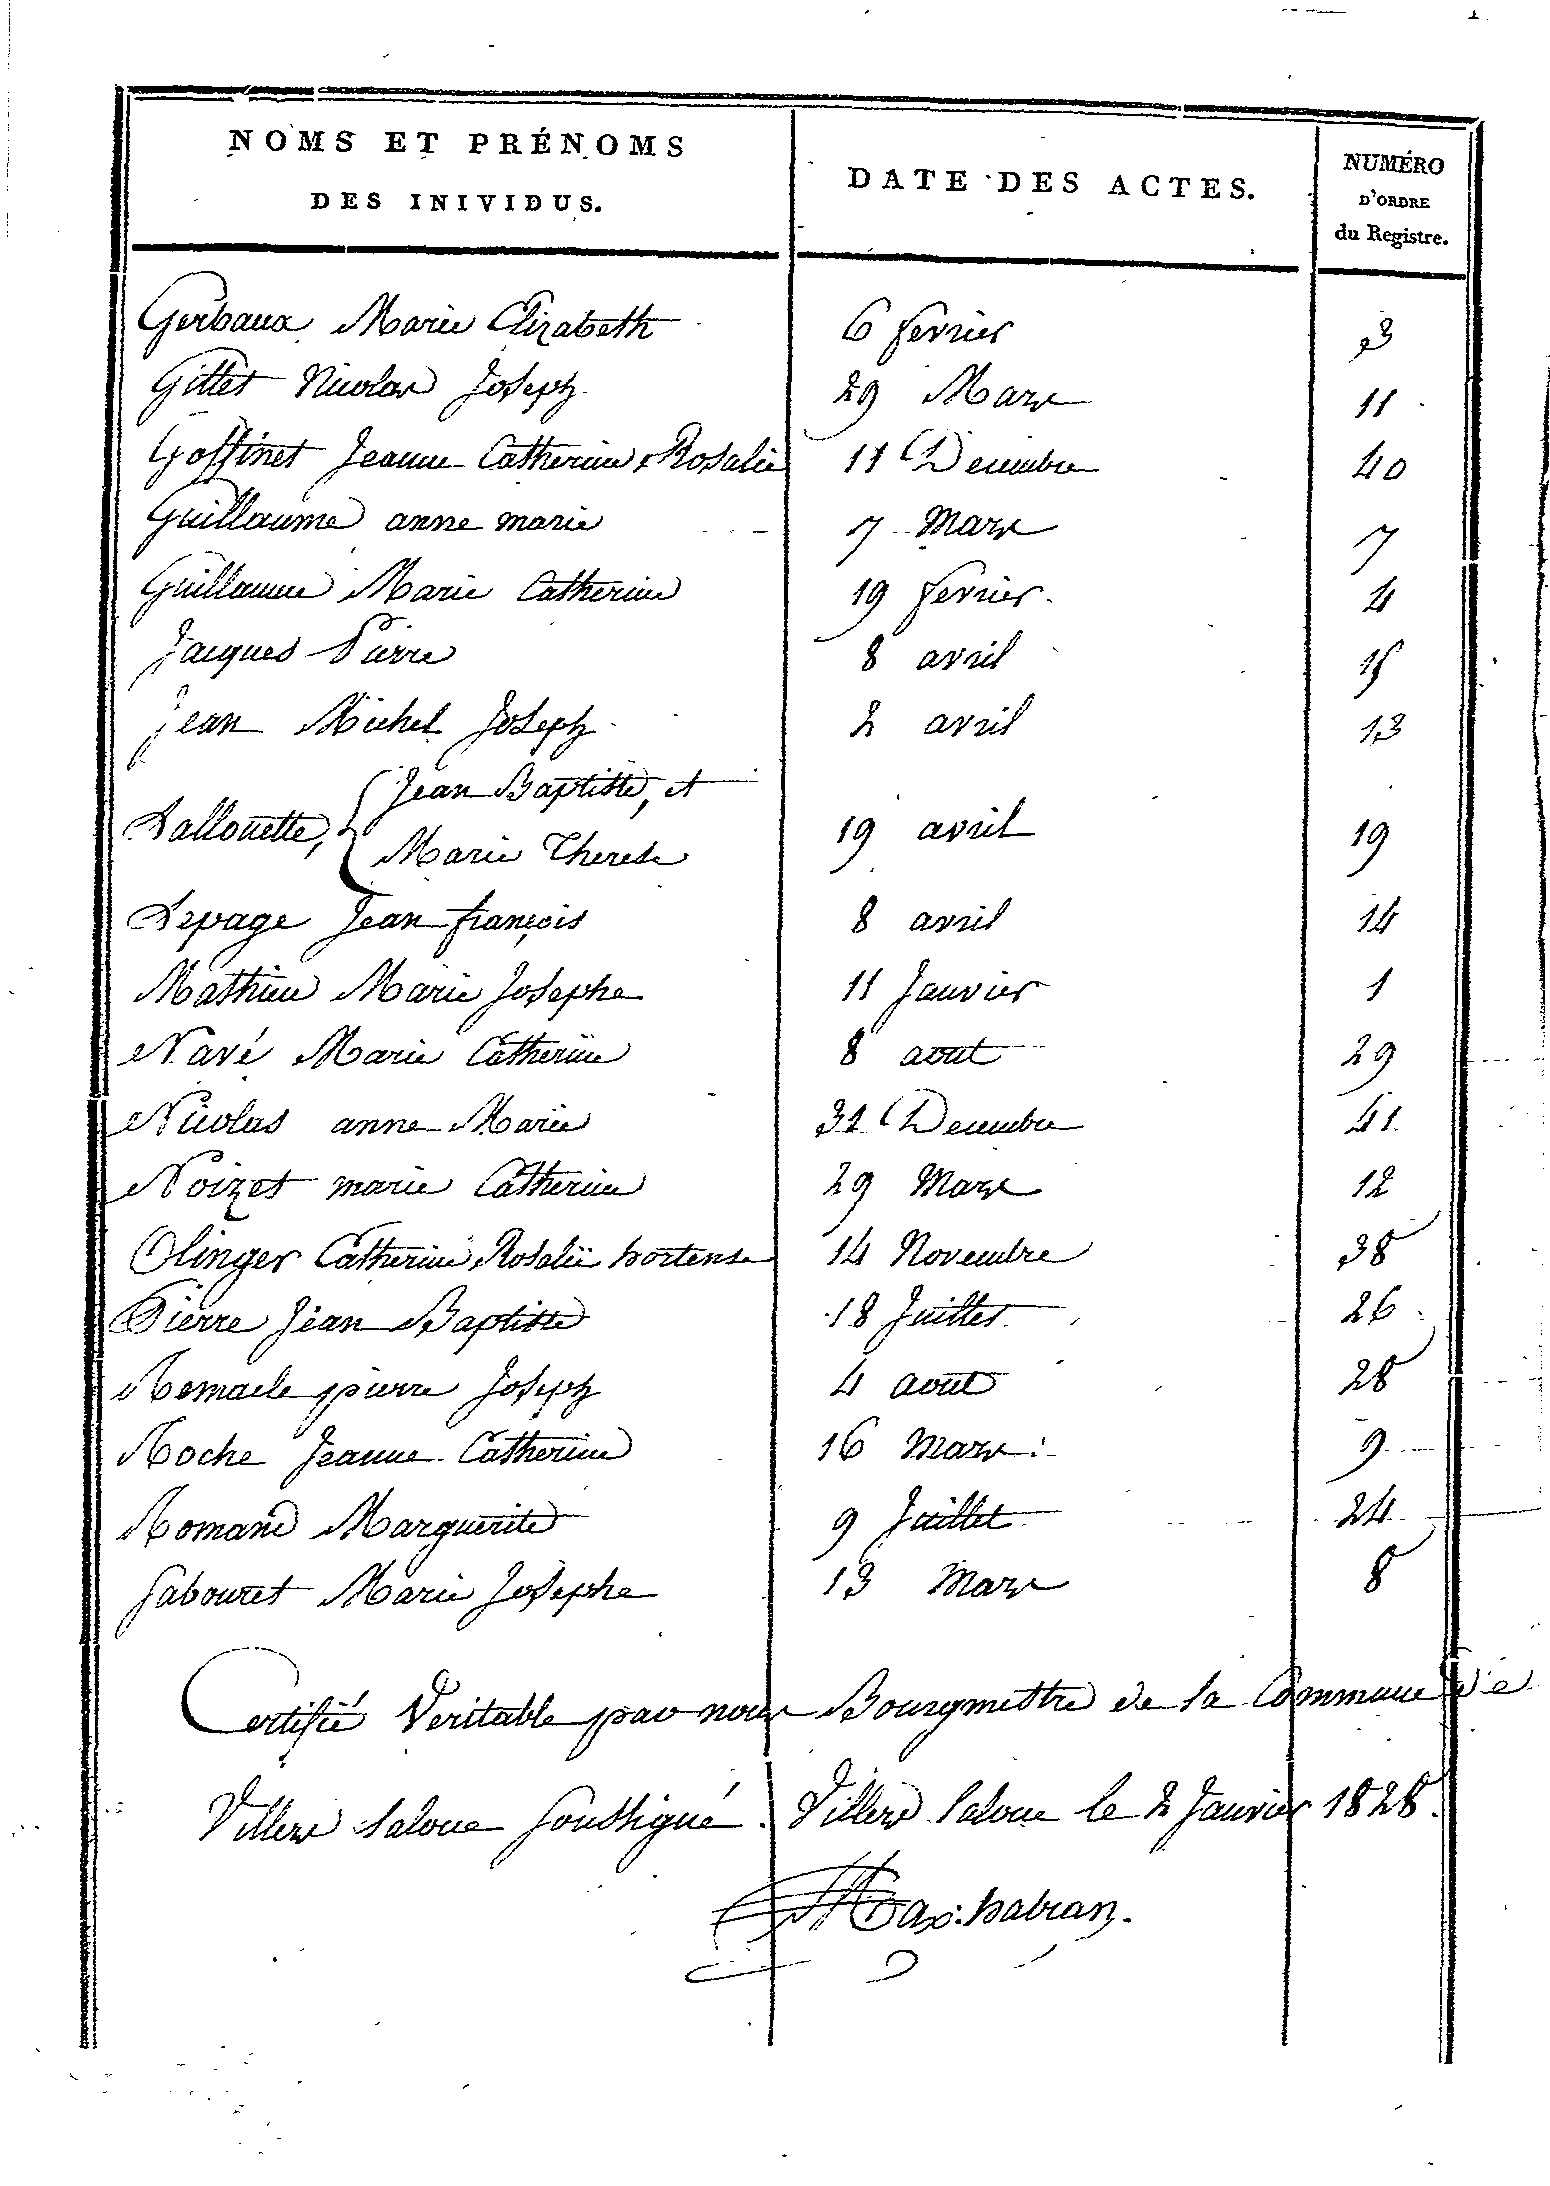 NOMS ET PRÉNOMS
DES INIVIDUS.
DATE DES ACTES.
NUMÉRO
D'ORDRE
du Registre.
Gerbaux Marie Elizabeth 6 fevrier 3
Gillet Nicolas Joseph 29 Mars 11
Goffinet Jeanne Catherine Rosalie 11 Decembre 40
Guillaume anne marie 7 Mars 7
Guillaume Marie Catherine 19 fevrier 4
Jacques Pierre 8 avril 15
Jean Michel Joseph 2 avril 13
Lallouette, { Jean Baptiste, et
Marie Therese 19 avril 19
Lepage Jean françois 8 avril 14
Mathieu Marie Josephe 11 Janvier 1
Navé Marie Catherine 8 aout 29
Nicolas anne Marie 31 Decembre 41
Noizet marie Catherine 29 Mars 12
Olinger Catherine Rosalie hortense 14 Novembre 38
Pierre Jean Baptiste 18 Juillet 26
Remacle pierre Joseph 4 aout 28
Roche Jeanne Catherine 16 Mars 9
Romand Marguerite 9 Juillet 24
Sabouret Marie Josephe 13 Mars 8
Certifié Veritable par nous Bourgmettre de la Commune de
Villers laloue soussigné. Villers laloue le 2 Janvier 1828.
Max. habran.